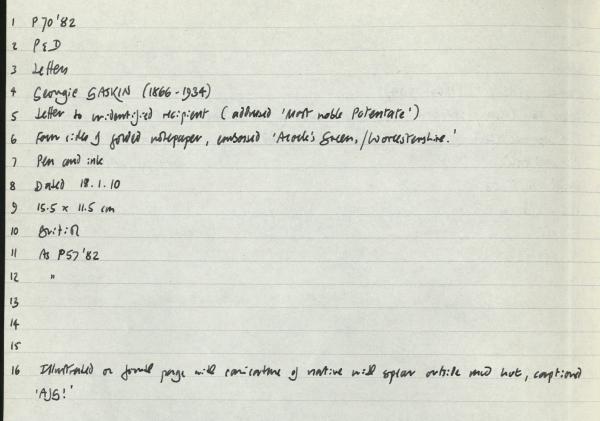 1 P70'82
2 P&D
3 Letters
4 Georgie GASKIN (1866-1934)
5 Letter to unidentified recipient (addressed 'Most noble Potentate')
6 Four sides of folded notepaper, embossed 'Acock's Green,/Worcestershire.'
7 Pen and ink
8 Dated 18.1.10
9 15.5 x 11.5 cm
10 British
11 As P57'82
12 "
13
14
15
16 Illustrated on fourth page with caricature of native with spear outside mud hut, captioned
'AJG!'